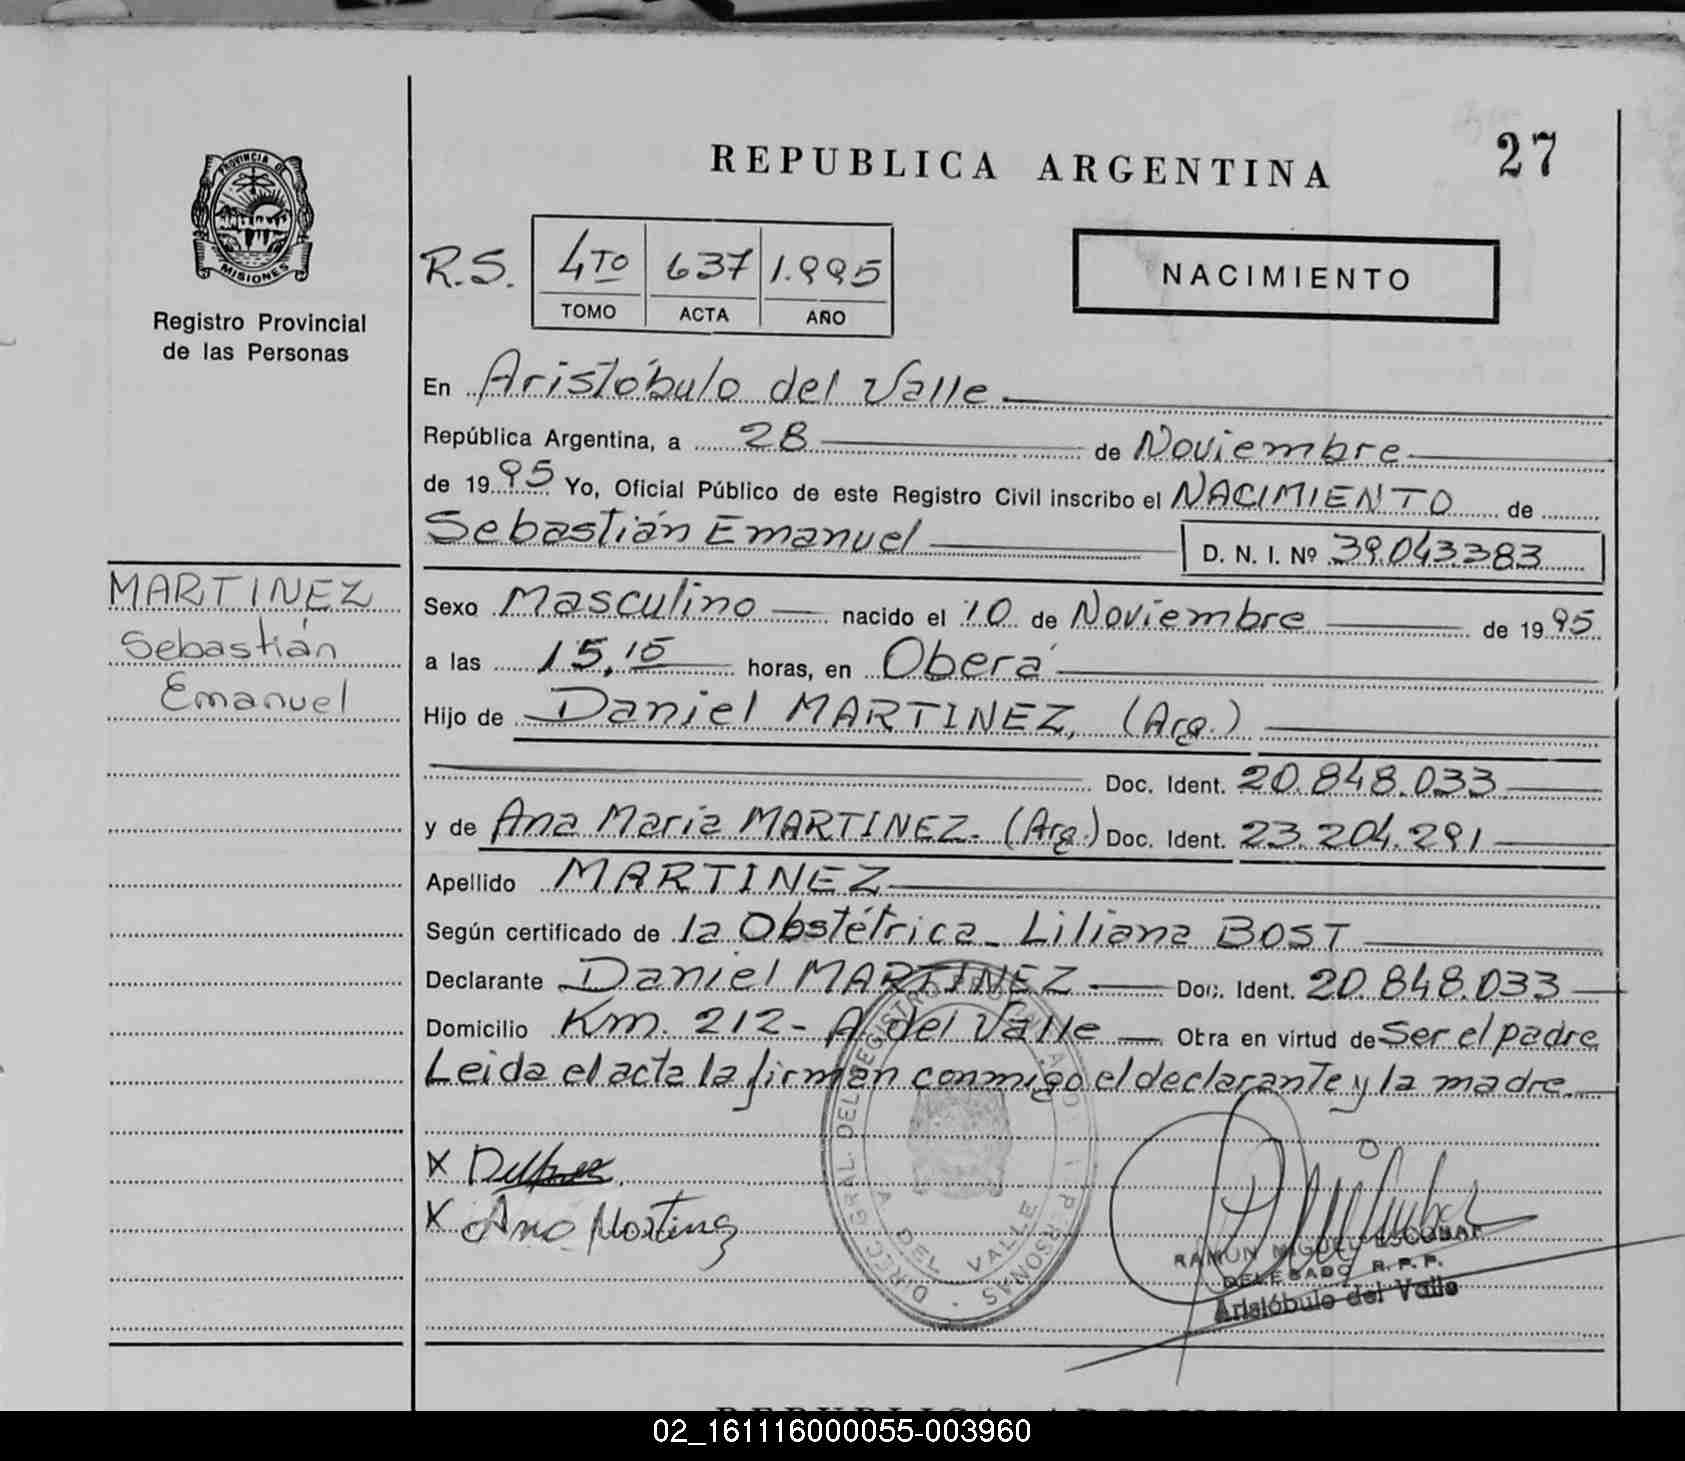 REPUBLICA ARGENTINA
27
PROVINCIA DE
MISIONES
Registro Provincial
de las Personas
R.S. 4TO 637 1.995
TOMO ACTA AÑO
NACIMIENTO
En Aristóbulo del Valle
República Argentina, a 28 de Noviembre
de 1995 Yo, Oficial Público de este Registro Civil inscribo el NACIMIENTO de
Sebastián Emanuel D. N. I. Nº 39.043.383
MARTINEZ
Sebastián
Emanuel
Sexo Masculino nacido el 10 de Noviembre de 1995
a las 15,15 horas, en Oberá
Hijo de Daniel MARTINEZ, (Arg.)
Doc. Ident. 20.848.033
y de Ana Maria MARTINEZ. (Arg.) Doc. Ident. 23.204.291
Apellido MARTINEZ
Según certificado de la Obstétrica - Liliana BOST
Declarante Daniel MARTINEZ Doc. Ident. 20.848.033
Domicilio Km. 212 - A. del Valle Obra en virtud de Ser el padre
Leida el acta la firman conmigo el declarante y la madre.
X
X Ana Martinez
DIREC. GRAL. DEL REGISTRO PERSONAS
A DEL VALLE
RAMON MIGUEL ESCOBAR
DELEGADO R. P. P.
Aristóbulo del Valle
02_161116000055-003960